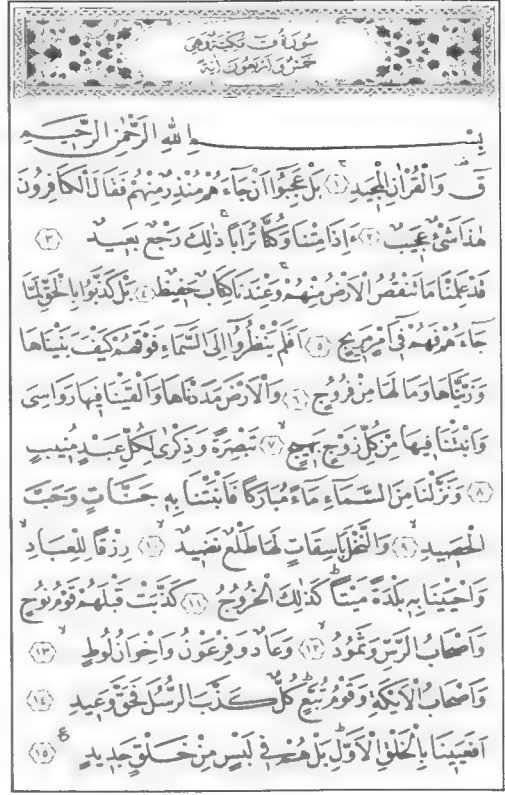 سُورَةُ قٓ مَكِّيَّةٌ وَهِيَ
خَمْسٌ وَاَرْبَعُونَ اٰيَةً
بِسْمِ اللّٰهِ الرَّحْمٰنِ الرَّحِيمِ
قٓ وَالْقُرْاٰنِ الْمَجِيدِ ﴿١﴾ بَلْ عَجِبُٓوا اَنْ جَٓاءَهُمْ مُنْذِرٌ مِنْهُمْ فَقَالَ الْكَافِرُونَ
هٰذَا شَيْءٌ عَجِيبٌ ﴿٢﴾ ءَاِذَا مِتْنَا وَكُنَّا تُرَاباً ذٰلِكَ رَجْعٌ بَعِيدٌ ﴿٣﴾
قَدْ عَلِمْنَا مَا تَنْقُصُ الْاَرْضُ مِنْهُمْ وَعِنْدَنَا كِتَابٌ حَفِيظٌ ﴿٤﴾ بَلْ كَذَّبُوا بِالْحَقِّ لَمَّا
جَٓاءَهُمْ فَهُمْ فِٓي اَمْرٍ مَرِيجٍ ﴿٥﴾ اَفَلَمْ يَنْظُرُٓوا اِلَى السَّمَٓاءِ فَوْقَهُمْ كَيْفَ بَنَيْنَاهَا
وَزَيَّنَّاهَا وَمَا لَهَا مِنْ فُرُوجٍ ﴿٦﴾ وَالْاَرْضَ مَدَدْنَاهَا وَاَلْقَيْنَا فِيهَا رَوَاسِيَ
وَاَنْبَتْنَا فِيهَا مِنْ كُلِّ زَوْجٍ بَهِيجٍ ﴿٧﴾ تَبْصِرَةً وَذِكْرٰى لِكُلِّ عَبْدٍ مُنِيبٍ
﴿٨﴾ وَنَزَّلْنَا مِنَ السَّمَٓاءِ مَٓاءً مُبَارَكاً فَاَنْبَتْنَا بِهٖ جَنَّاتٍ وَحَبَّ
الْحَصِيدِ ﴿٩﴾ وَالنَّخْلَ بَاسِقَاتٍ لَهَا طَلْعٌ نَضِيدٌ ﴿١٠﴾ رِزْقاً لِلْعِبَادِ
وَاَحْيَيْنَا بِهٖ بَلْدَةً مَيْتاً كَذٰلِكَ الْخُرُوجُ ﴿١١﴾ كَذَّبَتْ قَبْلَهُمْ قَوْمُ نُوحٍ
وَاَصْحَابُ الرَّسِّ وَثَمُودُ ﴿١٢﴾ وَعَادٌ وَفِرْعَوْنُ وَاِخْوَانُ لُوطٍ ﴿١٣﴾
وَاَصْحَابُ الْاَيْكَةِ وَقَوْمُ تُبَّعٍ كُلٌّ كَذَّبَ الرُّسُلَ فَحَقَّ وَعِيدِ ﴿١٤﴾
اَفَعَيِينَا بِالْخَلْقِ الْاَوَّلِ بَلْ هُمْ فِي لَبْسٍ مِنْ خَلْقٍ جَدِيدٍ ﴿١٥﴾